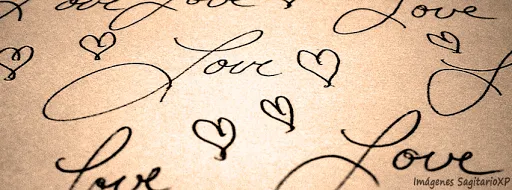 Love
Love
Love
Love
Love
Imágenes SagitarioXP